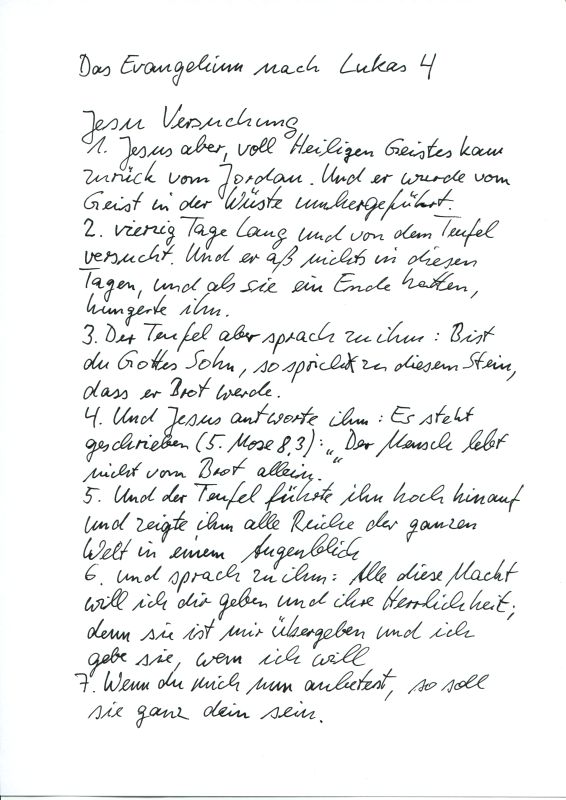 Das Evangelium nach Lukas 4
Jesu Versuchung
1. Jesus aber, voll Heiligen Geistes kam
zurück vom Jordan. Und er wurde vom
Geist in der Wüste umhergeführt.
2. vierzig Tage lang und von dem Teufel
versucht. Und er aß nichts in diesen
Tagen, und als sie ein Ende hatten,
hungerte ihn.
3. Der Teufel aber sprach zu ihm: Bist
du Gottes Sohn, so sprich zu diesem Stein,
dass er Brot werde.
4. Und Jesus antworte ihm: Es steht
geschrieben (5. Mose 8,3): „Der Mensch lebt
nicht vom Brot allein.“
5. Und der Teufel führte ihn hoch hinauf
und zeigte ihm alle Reiche der ganzen
Welt in einem Augenblick
6. und sprach zu ihm: Alle diese Macht
will ich dir geben und ihre Herrlichkeit;
denn sie ist mir übergeben und ich
gebe sie, wem ich will
7. Wenn du mich nun anbetest, so soll
sie ganz dein sein.